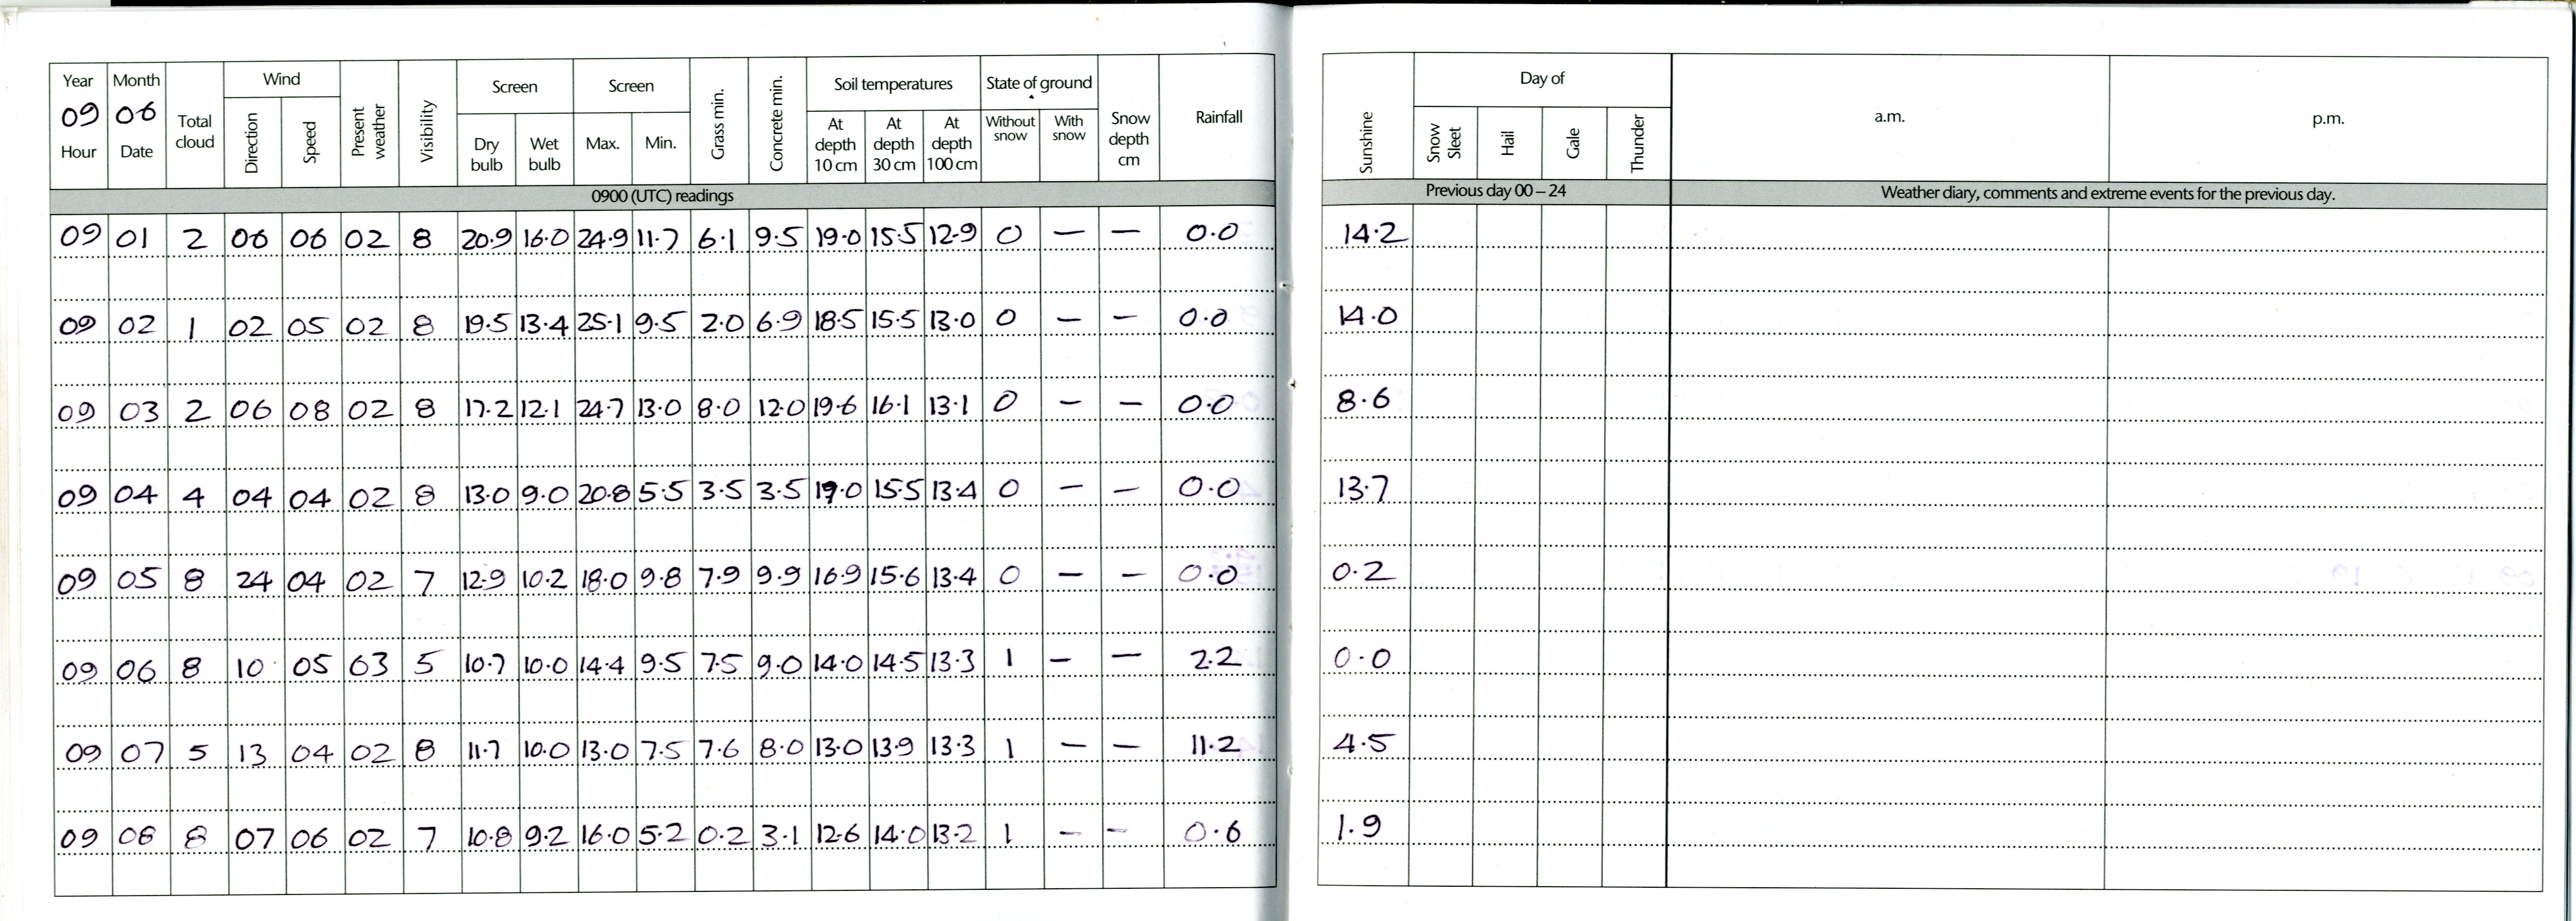 Year Month Total cloud Wind Present weather Visibility Screen Screen Grass min. Concrete min. Soil temperatures State of ground Snow depth cm Rainfall Sunshine Day of a.m. p.m.
09 06
Hour Date Direction Speed Dry bulb Wet bulb Max. Min. At depth 10 cm At depth 30 cm At depth 100 cm Without snow With snow Snow Sleet Hail Gale Thunder
0900 (UTC) readings Previous day 00 – 24 Weather diary, comments and extreme events for the previous day.
09 01 2 06 06 02 8 20.9 16.0 24.9 11.7 6.1 9.5 19.0 15.5 12.9 0 — — 0.0 14.2
09 02 1 02 05 02 8 19.5 13.4 25.1 9.5 2.0 6.9 18.5 15.5 13.0 0 — — 0.0 14.0
09 03 2 06 08 02 8 17.2 12.1 24.7 13.0 8.0 12.0 19.6 16.1 13.1 0 — — 0.0 8.6
09 04 4 04 04 02 8 13.0 9.0 20.8 5.5 3.5 3.5 17.0 15.5 13.4 0 — — 0.0 13.7
09 05 8 24 04 02 7 12.9 10.2 18.0 9.8 7.9 9.9 16.9 15.6 13.4 0 — — 0.0 0.2
09 06 8 10 05 63 5 10.7 10.0 14.4 9.5 7.5 9.0 14.0 14.5 13.3 1 — — 2.2 0.0
09 07 5 13 04 02 8 11.7 10.0 13.0 7.5 7.6 8.0 13.0 13.9 13.3 1 — — 11.2 4.5
09 08 8 07 06 02 7 10.8 9.2 16.0 5.2 0.2 3.1 12.6 14.0 13.2 1 — — 0.6 1.9